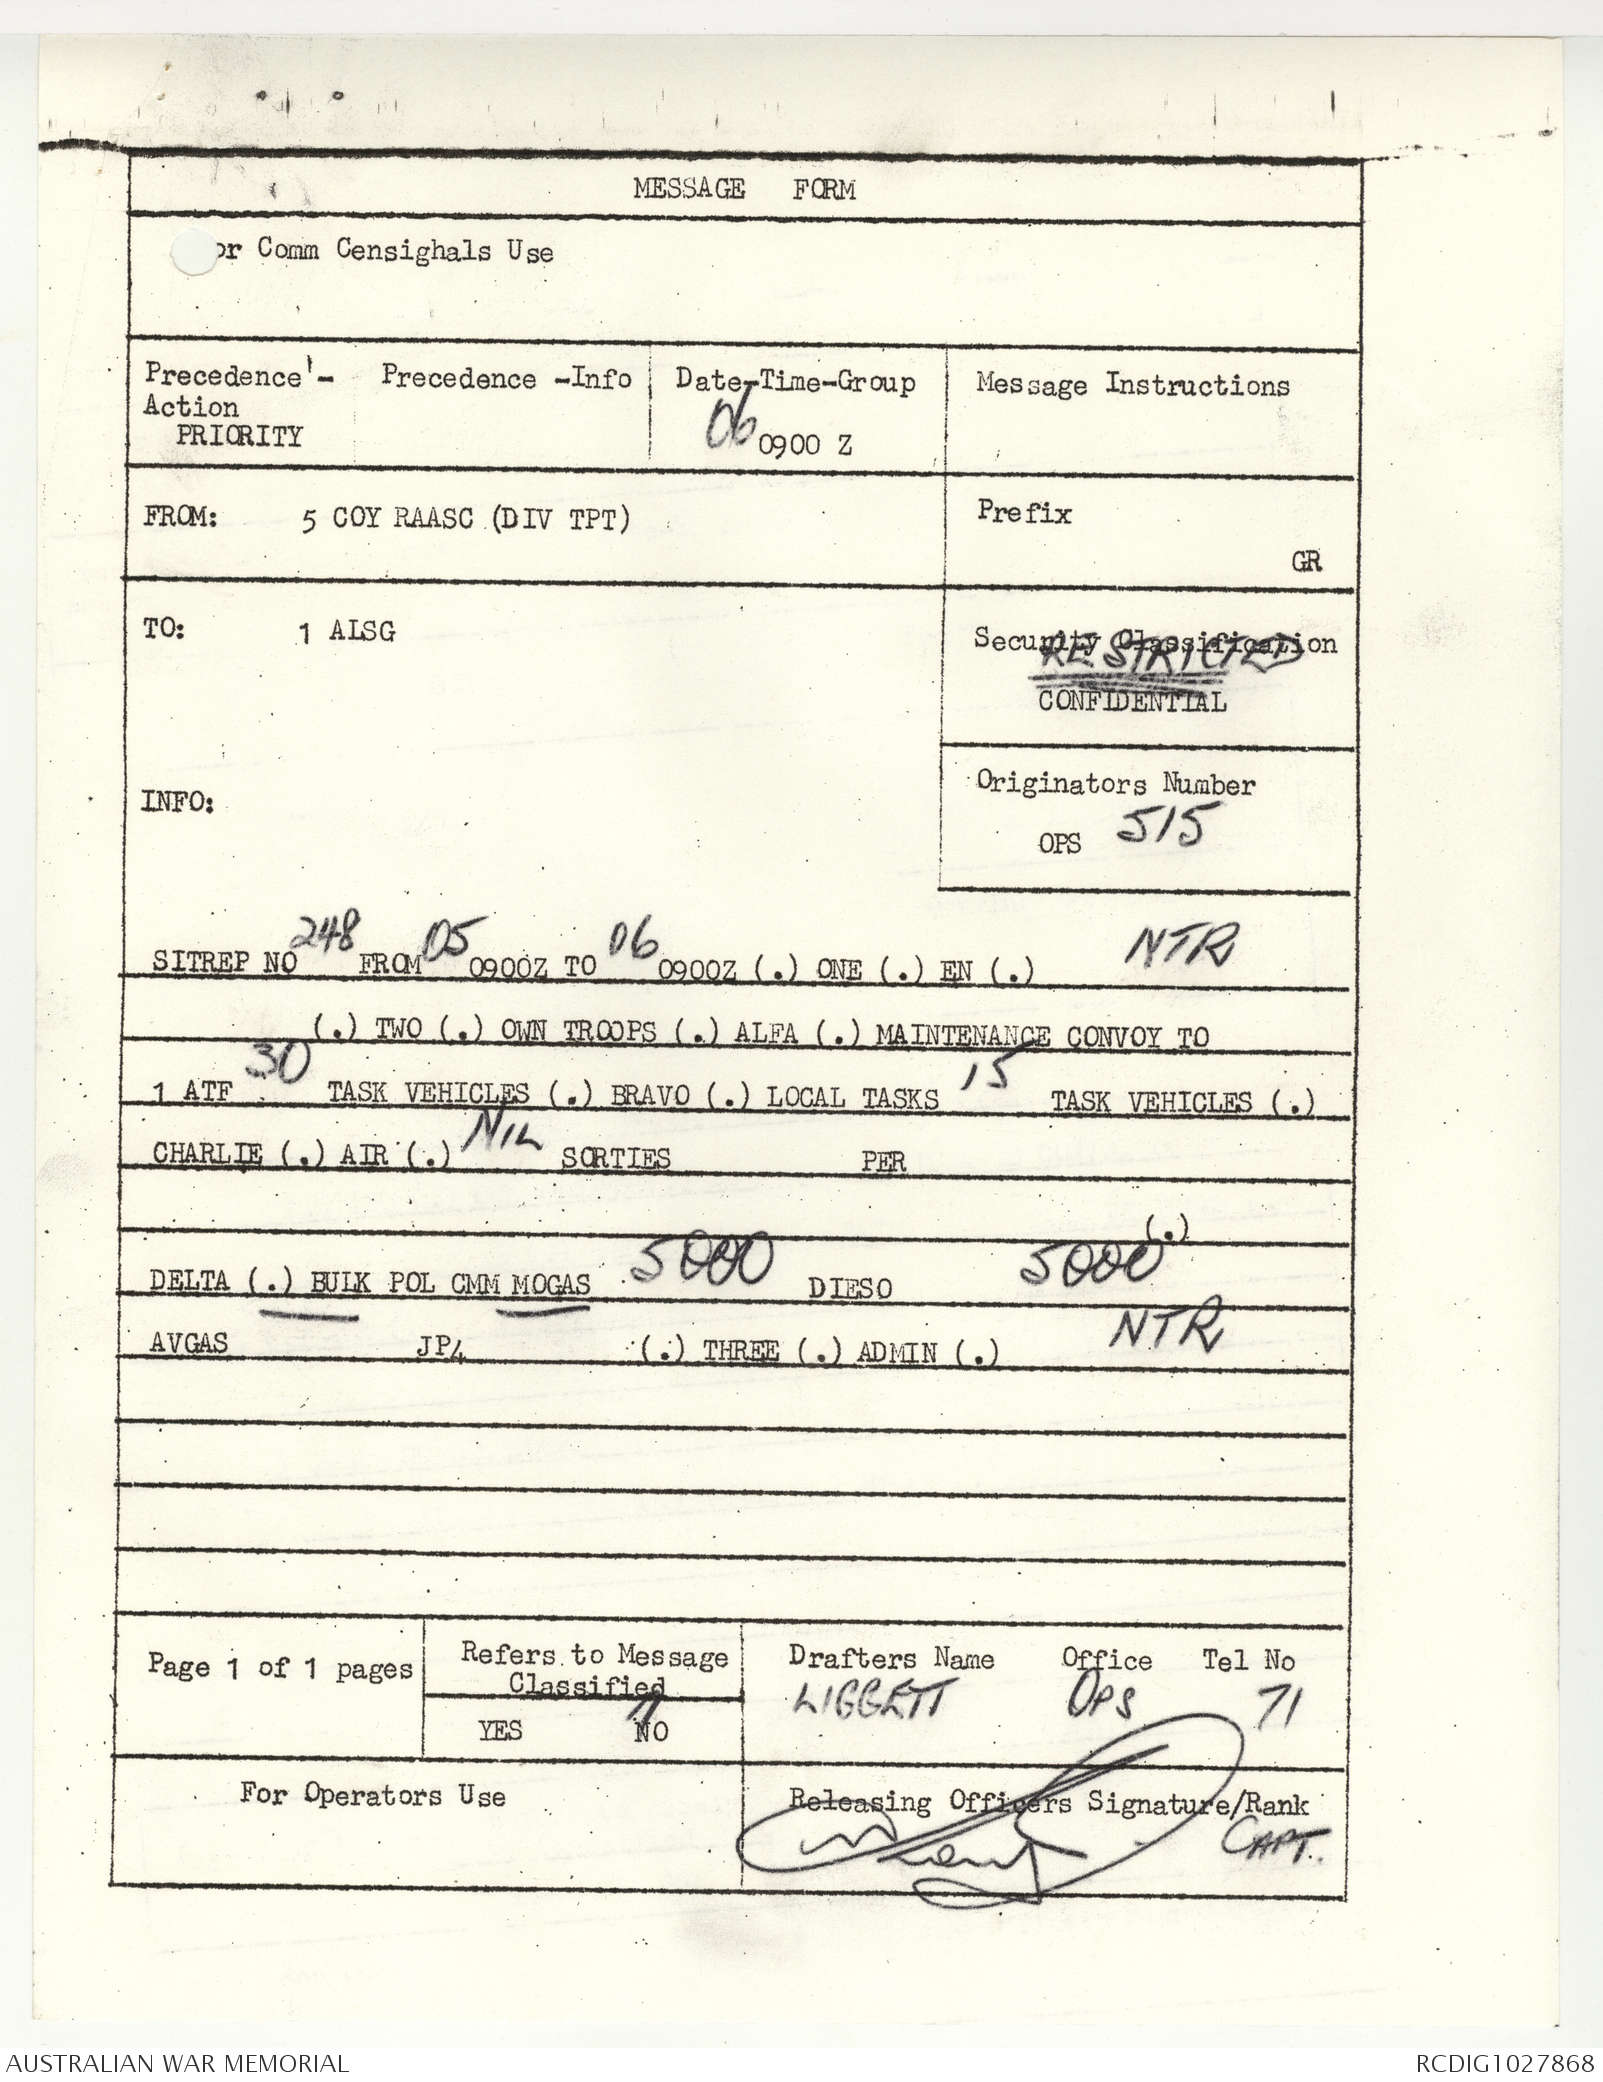 MESSAGE FORM
or Comm Censighals Use
Precedence - Precedence -Info Date-Time-Group Message Instructions
Action
PRIORITY 06 0900 Z
FROM: 5 COY RAASC (DIV TPT) Prefix
GR
TO: 1 ALSG Security Classification
RESTRICTED
CONFIDENTIAL
INFO: Originators Number
OPS 515
SITREP NO 248 FROM 05 0900Z TO 06 0900Z (.) ONE (.) EN (.) NTR
(.) TWO (.) OWN TROOPS (.) ALFA (.) MAINTENANCE CONVOY TO
1 ATF 30 TASK VEHICLES (.) BRAVO (.) LOCAL TASKS 15 TASK VEHICLES (.)
CHARLIE (.) AIR (.) NIL SORTIES PER
(.)
DELTA (.) BULK POL CMM MOGAS 5000 DIESO 5000
AVGAS JP4 (.) THREE (.) ADMIN (.) NTR
Page 1 of 1 pages Refers to Message Drafters Name Office Tel No
Classified LIGGETT OPS 71
YES NO
For Operators Use Releasing Officers Signature/Rank
CAPT.
AUSTRALIAN WAR MEMORIAL RCDIG1027868